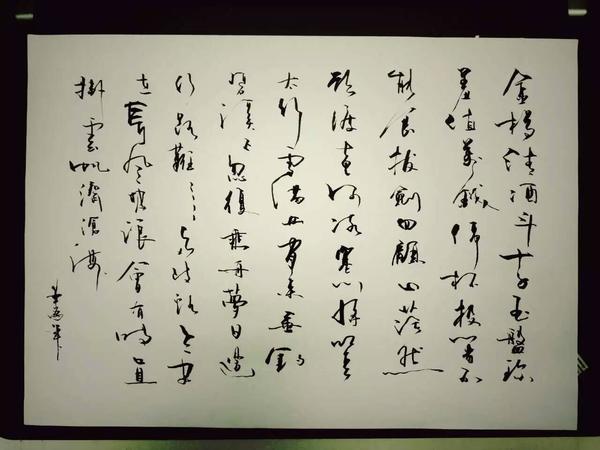 金樽清酒斗十千玉盤珍
羞值萬錢停杯投箸不
能食拔劍四顧心茫然
欲渡黃河冰塞川將登
太行雪滿山閒來垂釣
碧溪上忽復乘舟夢日邊
行路難、、、、多歧路今安
在長風破浪會有時直
掛雲帆濟滄海